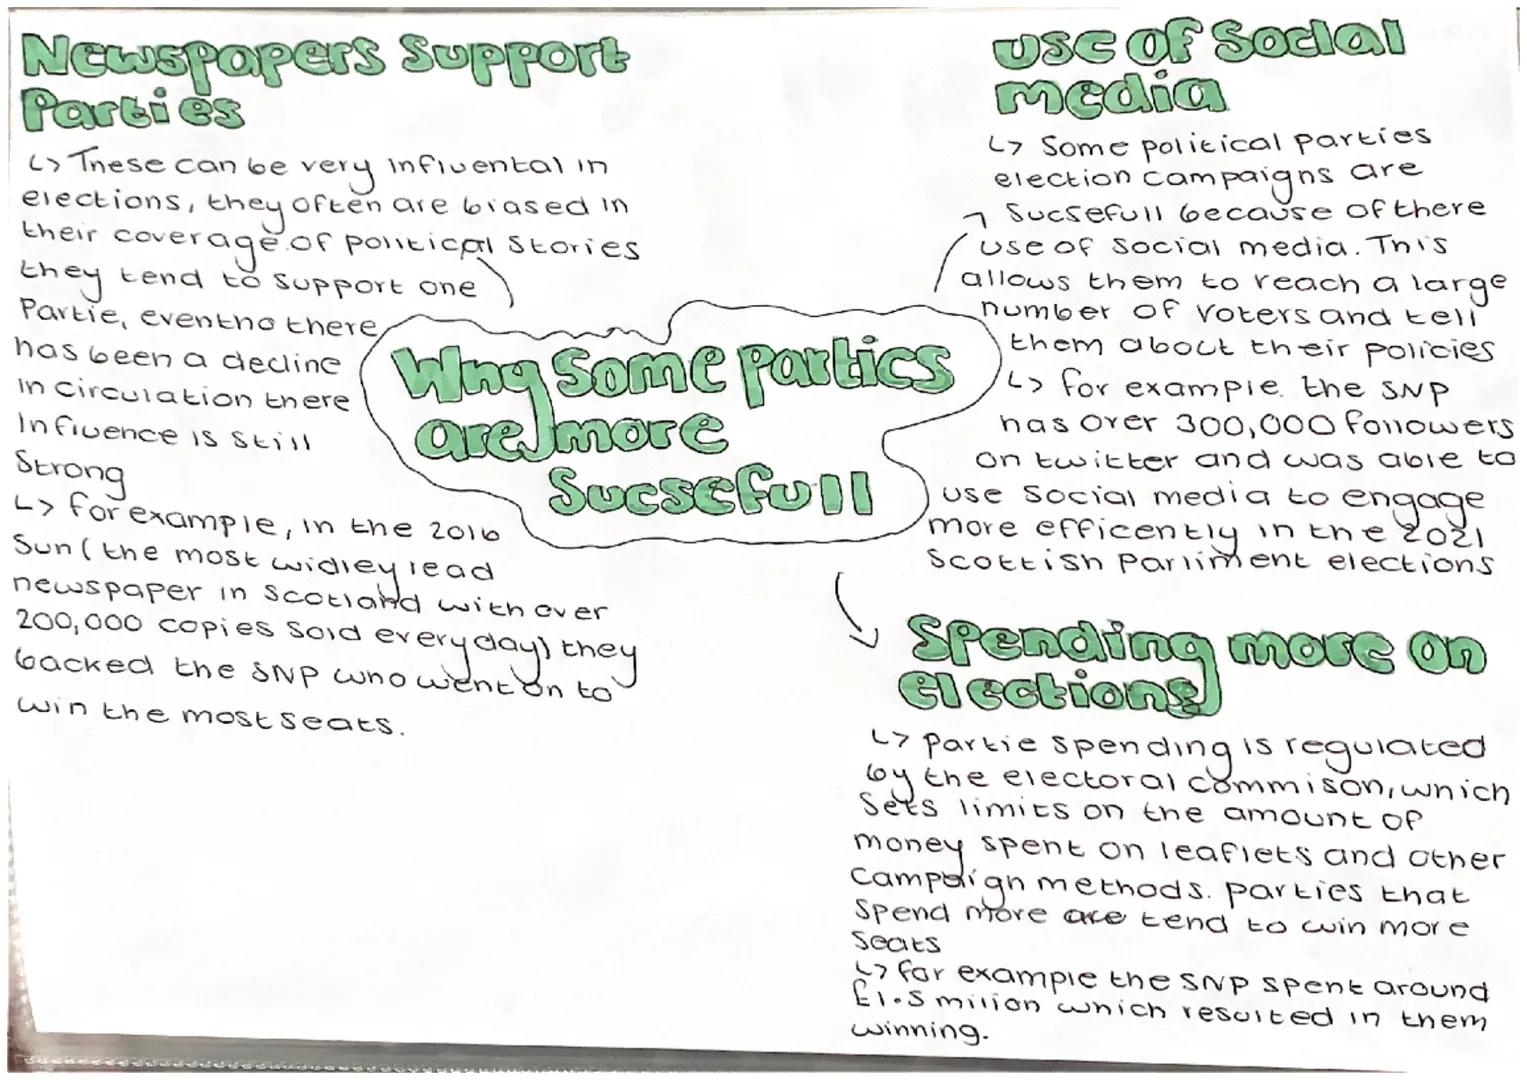 Newspapers Support
Parties
↳ These can be very influental in
elections, they often are biased in
their coverage of political stories
they tend to support one
Partie, eventho there
has been a decline
in circulation there
Influence is still
Strong
↳ for example, in the 2016
Sun (the most widley read
newspaper in Scotland with over
200,000 copies sold every day) they
backed the SNP who went on to
win the most seats.
Why Some parties
are more
Sucsefull
use of Social
media
↳ Some political parties
election campaigns are
Sucsefull because of there
use of social media. This
allows them to reach a large
number of voters and tell
them about their policies
↳ for example. the SNP
has over 300,000 followers
on twitter and was able to
use social media to engage
more efficently in the 2021
Scottish Parliment elections
Spending more on
elections
↳ partie spending is regulated
by the electoral commison, which
sets limits on the amount of
money spent on leaflets and other
campaign methods. parties that
spend more are tend to win more
seats
↳ for example the SNP spent around
£1.5 milion which resulted in them
winning.